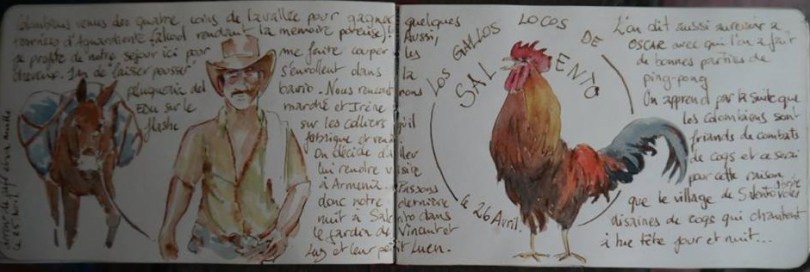 Colombiens venus des quatre coins de la vallée pour gagner quelques
tournées d'Aguardiente (alcool rendant la mémoire poreuse)! Aussi,
profite de notre séjour ici pour me faire couper les
cheveux. de laisser pousser s'enrollent dans la
peluquería del barrio. Nous
Eau sur le marché et Irène
flashe sur les colliers qu'il
fabrique et
On décide d'aller
lui rendre visite
à Armenia. Passons
donc notre dernière
nuit à Salento dans
le jardin de Vincent et
Luz et leur petit Luen.
LOS GALLOS LOCOS DE
SALENTO
le 26 Avril
L'on dit aussi au revoir à
OSCAR avec qui l'on a fait
de bonnes parties de
ping-pong
On apprend par la suite que
les colombiens sont
friands de combats
de coqs et ce serait
pour cette raison
que le village de Salento
dizaines de coqs qui chantent
à tue tête jour et nuit...